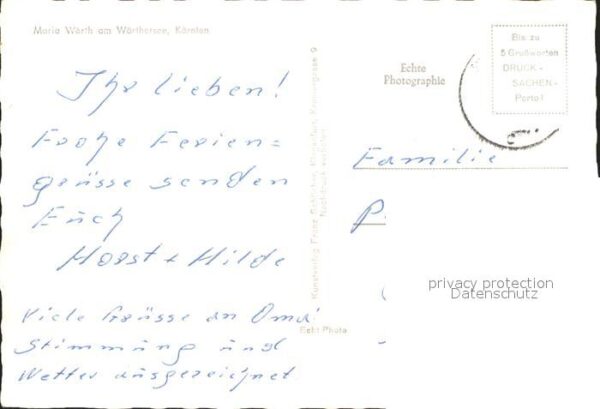 Maria Wörth am Wörthersee, Kärnten
Ihr lieben!
Frohe Ferien=
grüsse senden
Euch
Horst + Hilde
Viele Grüsse an Oma!
Stimmung und
Wetter ausgezeichnet
Nachdruck verboten
Echt Photo
Echte
Photographie
Bis zu
5 Grußworten
DRUCK-
SACHEN-
Porto!
Familie
P.
privacy protection
Datenschutz